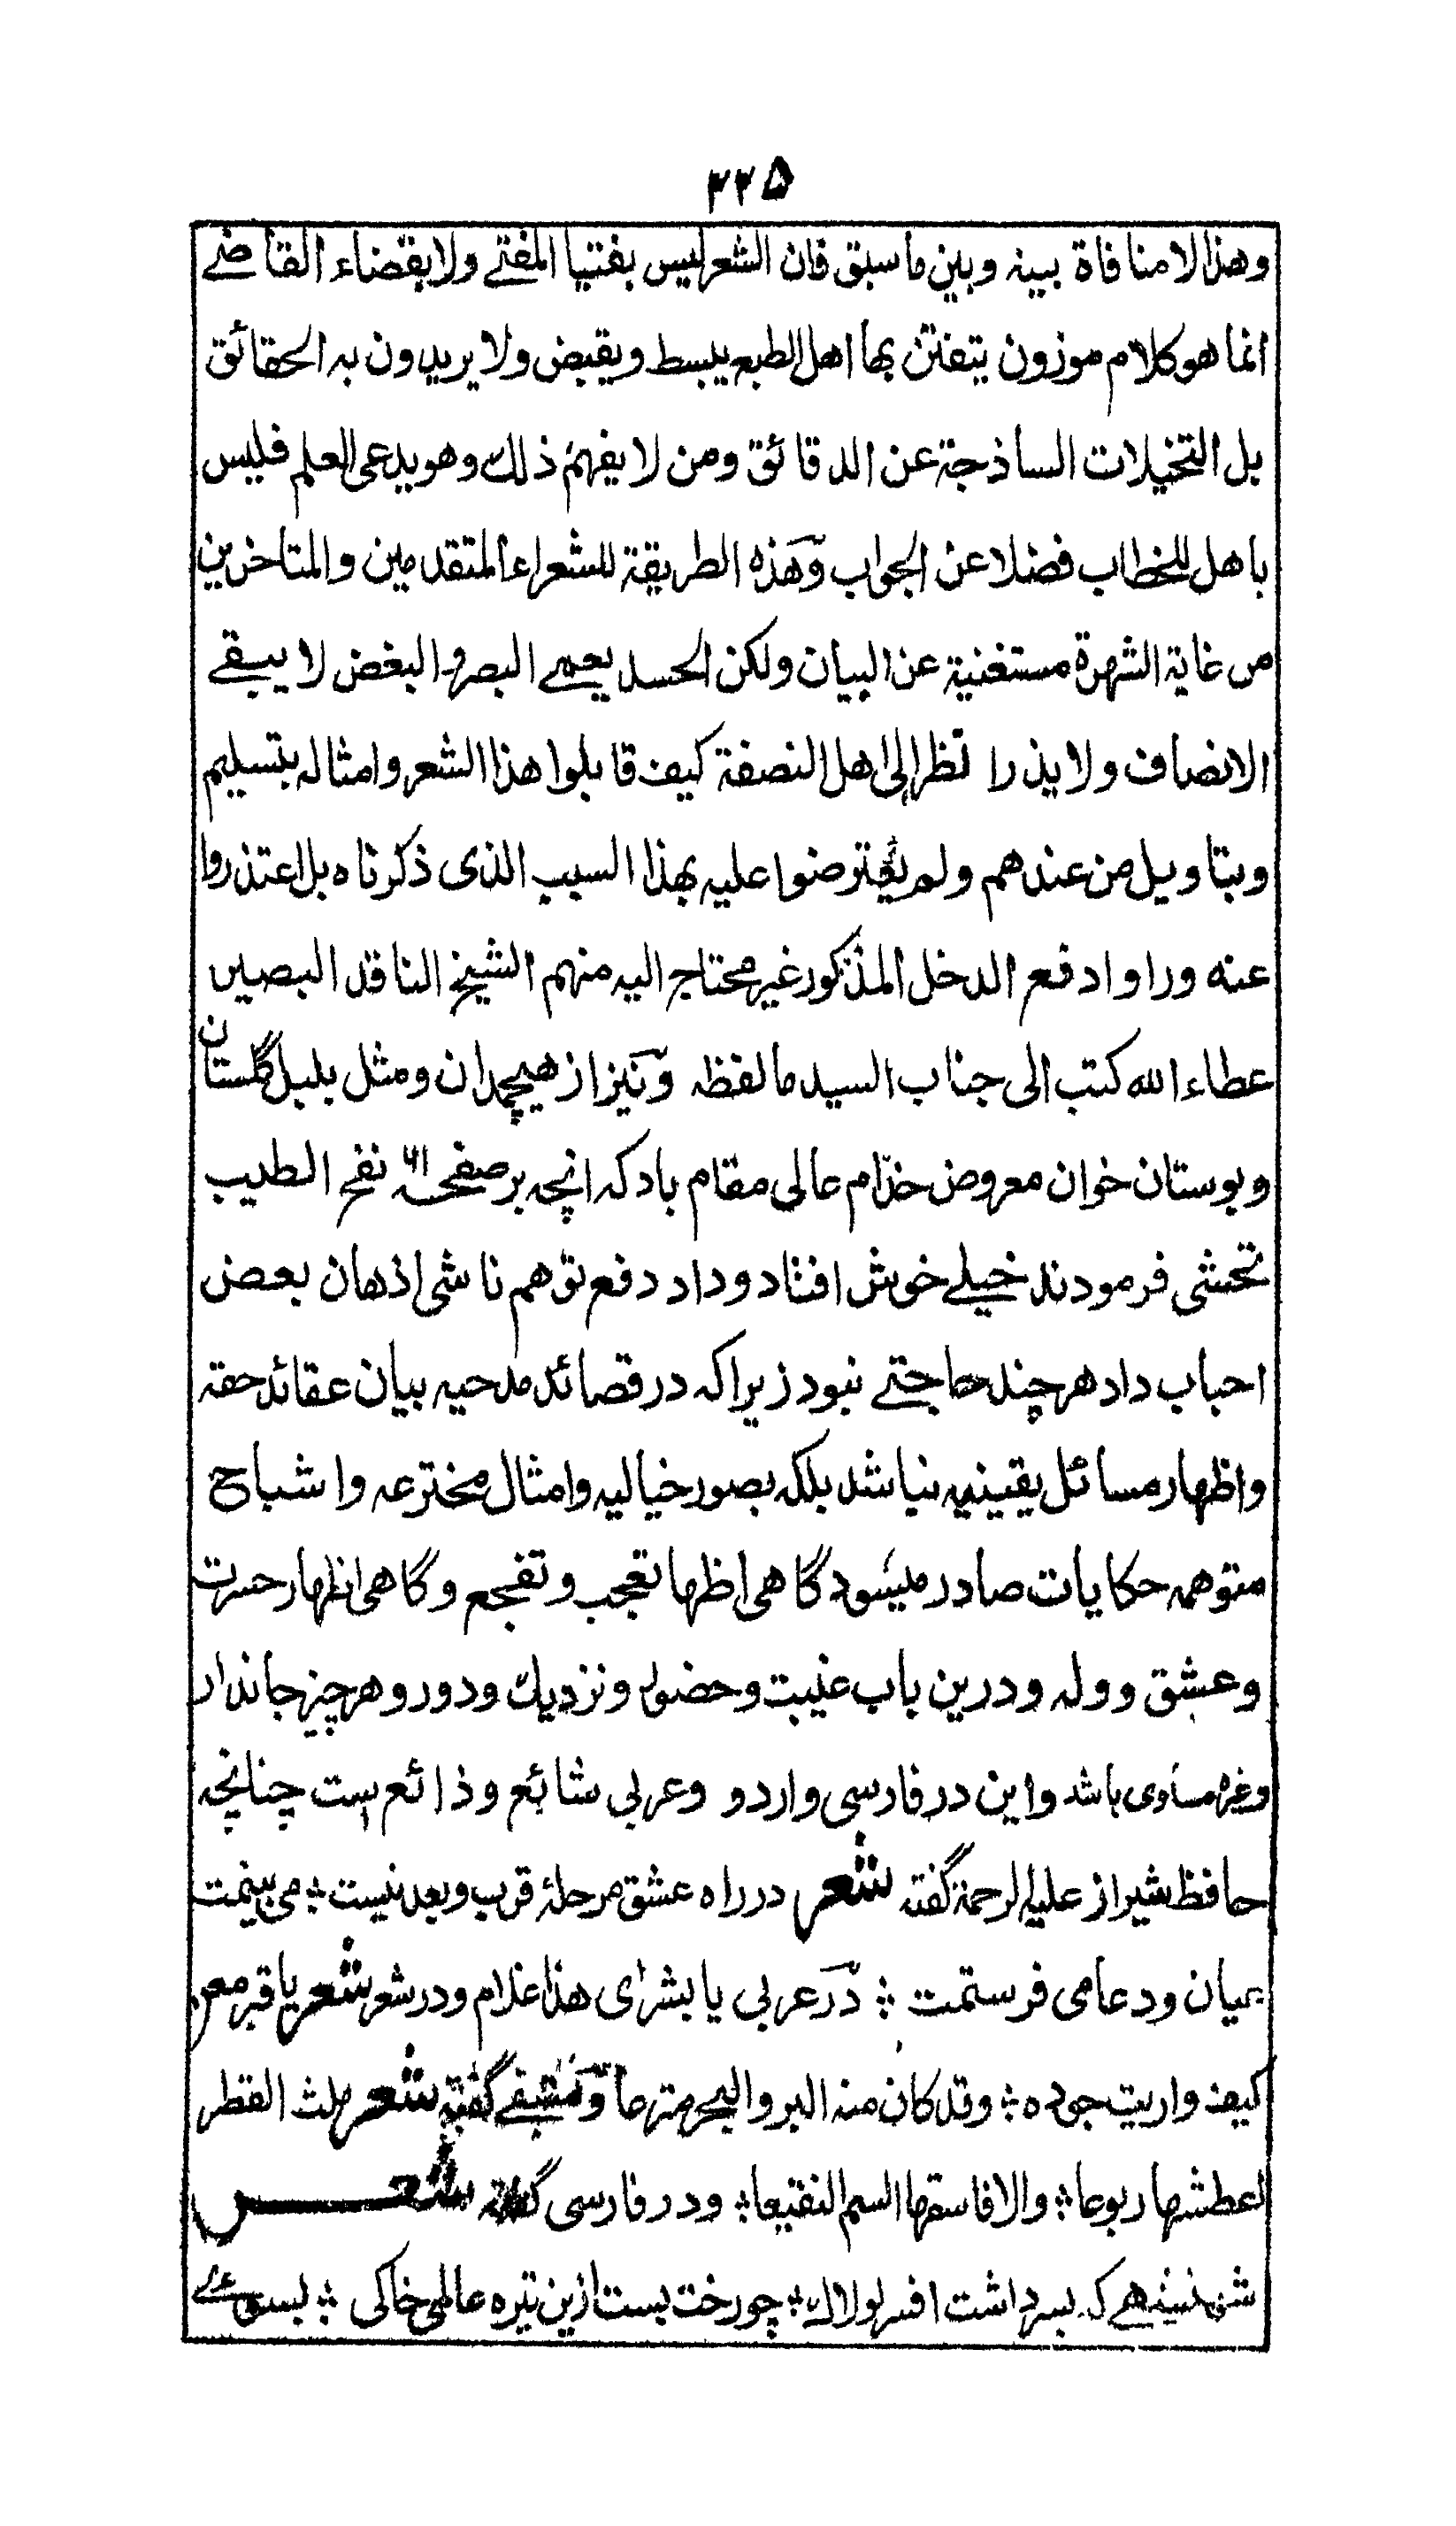 ۲۲۵
وهذا لا منافاة بينه وبين ما سبق فان الشعر ليس بفتيا المفتے ولا بقضاء القاضے
انما هو كلام موزون يتفنن بها اهل الطبع يبسط ويقبض ولا يريدون به الحقائق
بل التخيلات الساذجة عن الدقائق ومن لا يفهم ذلك وهو يدعى العلم فليس
باهل للخطاب فضلا عن الجواب وهذه الطريقة للشعراء المتقدمين والمتاخرين
من غاية الشهرة مستغنية عن البيان ولكن الحسد يعمے البصر والبغض لا يبقے
الانصاف ولا يذر انظر الى اهل النصفة كيف قابلوا هذا الشعر وامثاله بتسليم
وبتاويل من عندهم ولم يعترضوا عليه بهذا السبب الذى ذكرناه بل اعتذروا
عنه وراوا دفع الدخل المذكور غير محتاج اليه منهم الشيخ الناقد البصير
عطاء الله كتب الى جناب السيد ما لفظه ونيز از هيچمدان ومثل بلبل گلستان
وبوستان خوان معروض خدّام عالى مقام باد كه انچه بر صفحه نفح الطيب
تحشى فرمودند خيلے خوش افتاد وداد دفع توهم ناشى اذهان بعض
احباب داد هر چند حاجتے نبود زيرا كه در قصائد مدحيه بيان عقائد حقه
واظهار مسائل يقينيه نباشد بلكه بصور خياليه وامثال مخترعه واشباح
متوهمه حكايات صادر ميشود گاهى اظها تعجب وتفجع وگاهى اظهار حسرت
وعشق ووله ودرين باب غيبت وحضور ونزديك ودور وهر چيز جاندار
وغيره مساوى باشد واين در فارسى واردو وعربى شائع وذائع است چنانچه
حافظ شيراز عليه الرحمة گفته شعر در راه عشق مرحلهٔ قرب وبعد نيست ؞ مى بينمت
بميان ودعا مى فرستمت ؞ در عربى يا بشراى هذا غلام ودر شعر شعر يا قبر معن
كيف واريت جوده ؞ وقد كان منه البر والبحر مترعا ومتنبى گفته شعر ملث القطر
اعطشها ربوعا ؞ والا فاسقها السم النقيعا ؞ ودر فارسى گفته شعر
شهنشهے كه بسر داشت افسر لولاك ؞ چو رخت بست ازين تيره عالم خاكى ؞ بسوے